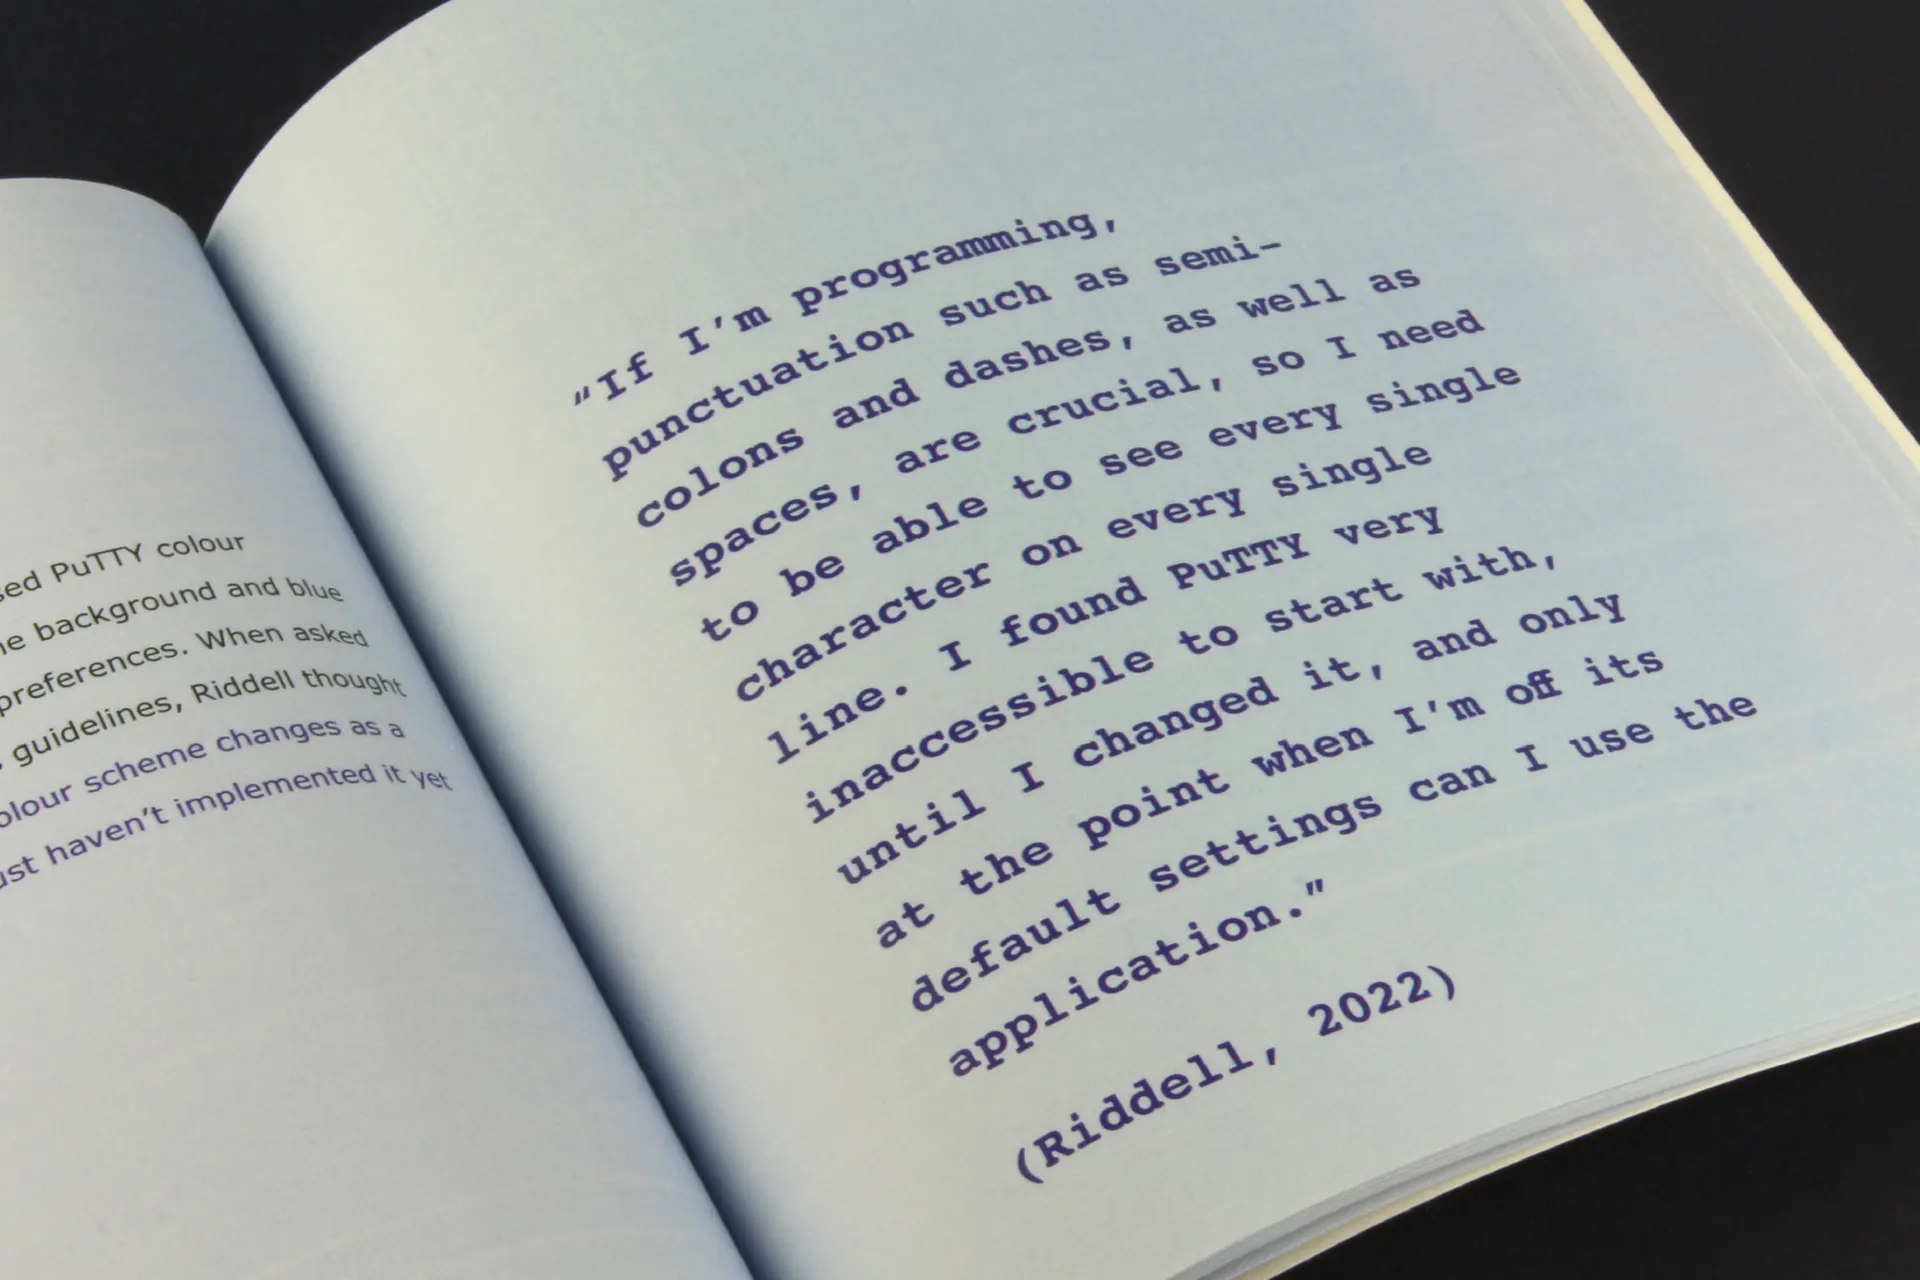 sed PuTTY colour
background and blue
preferences. When asked
guidelines, Riddell thought
olour scheme changes as a
ust haven't implemented it yet
"If I'm programming,
punctuation such as semi-
colons and dashes, as well as
spaces, are crucial, so I need
to be able to see every single
character on every single
line. I found PuTTY very
inaccessible to start with,
until I changed it, and only
at the point when I'm off its
default settings can I use the
application."
(Riddell, 2022)